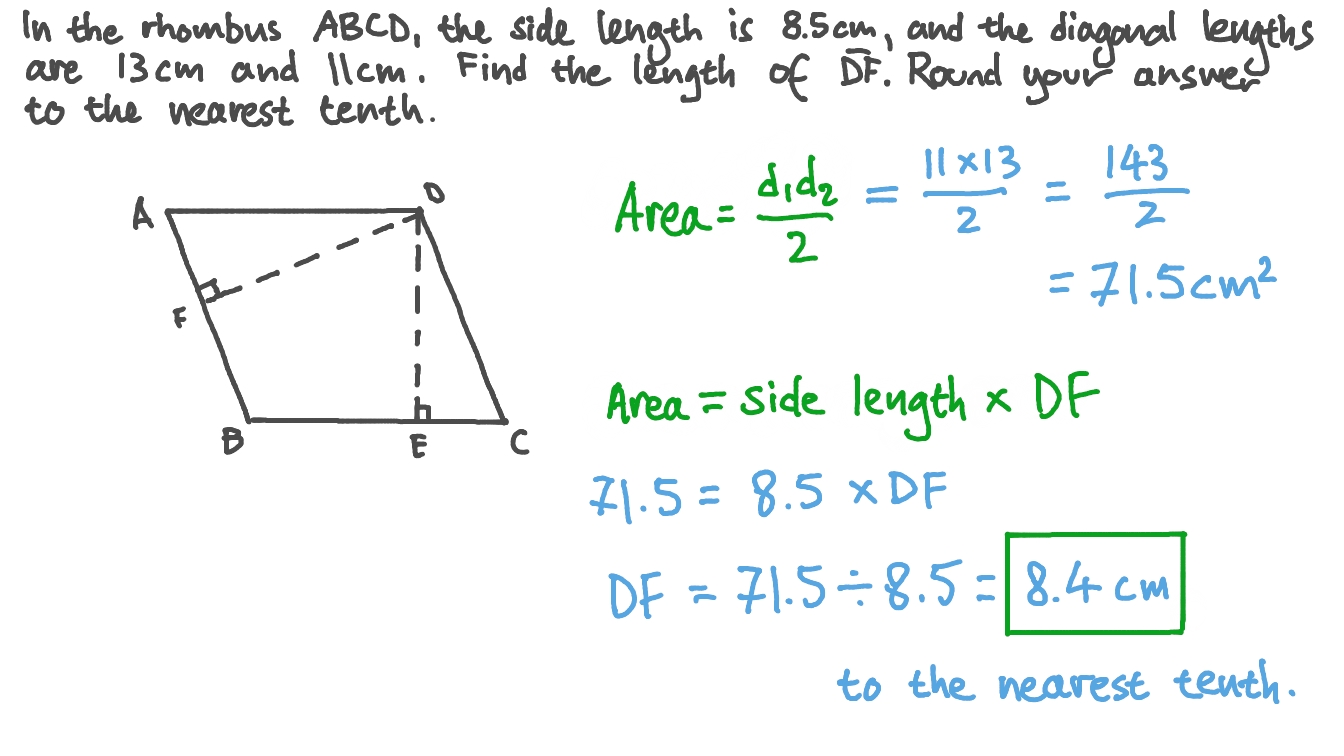 In the rhombus ABCD, the side length is 8.5cm, and the diagonal lengths
are 13cm and 11cm. Find the length of D̅F̅. Round your answer
to the nearest tenth.
A
D
F
B
E
C
Area = d₁d₂/2 = 11×13/2 = 143/2
= 71.5cm²
Area = side length × DF
71.5 = 8.5 × DF
DF = 71.5÷8.5 = 8.4 cm
to the nearest tenth.